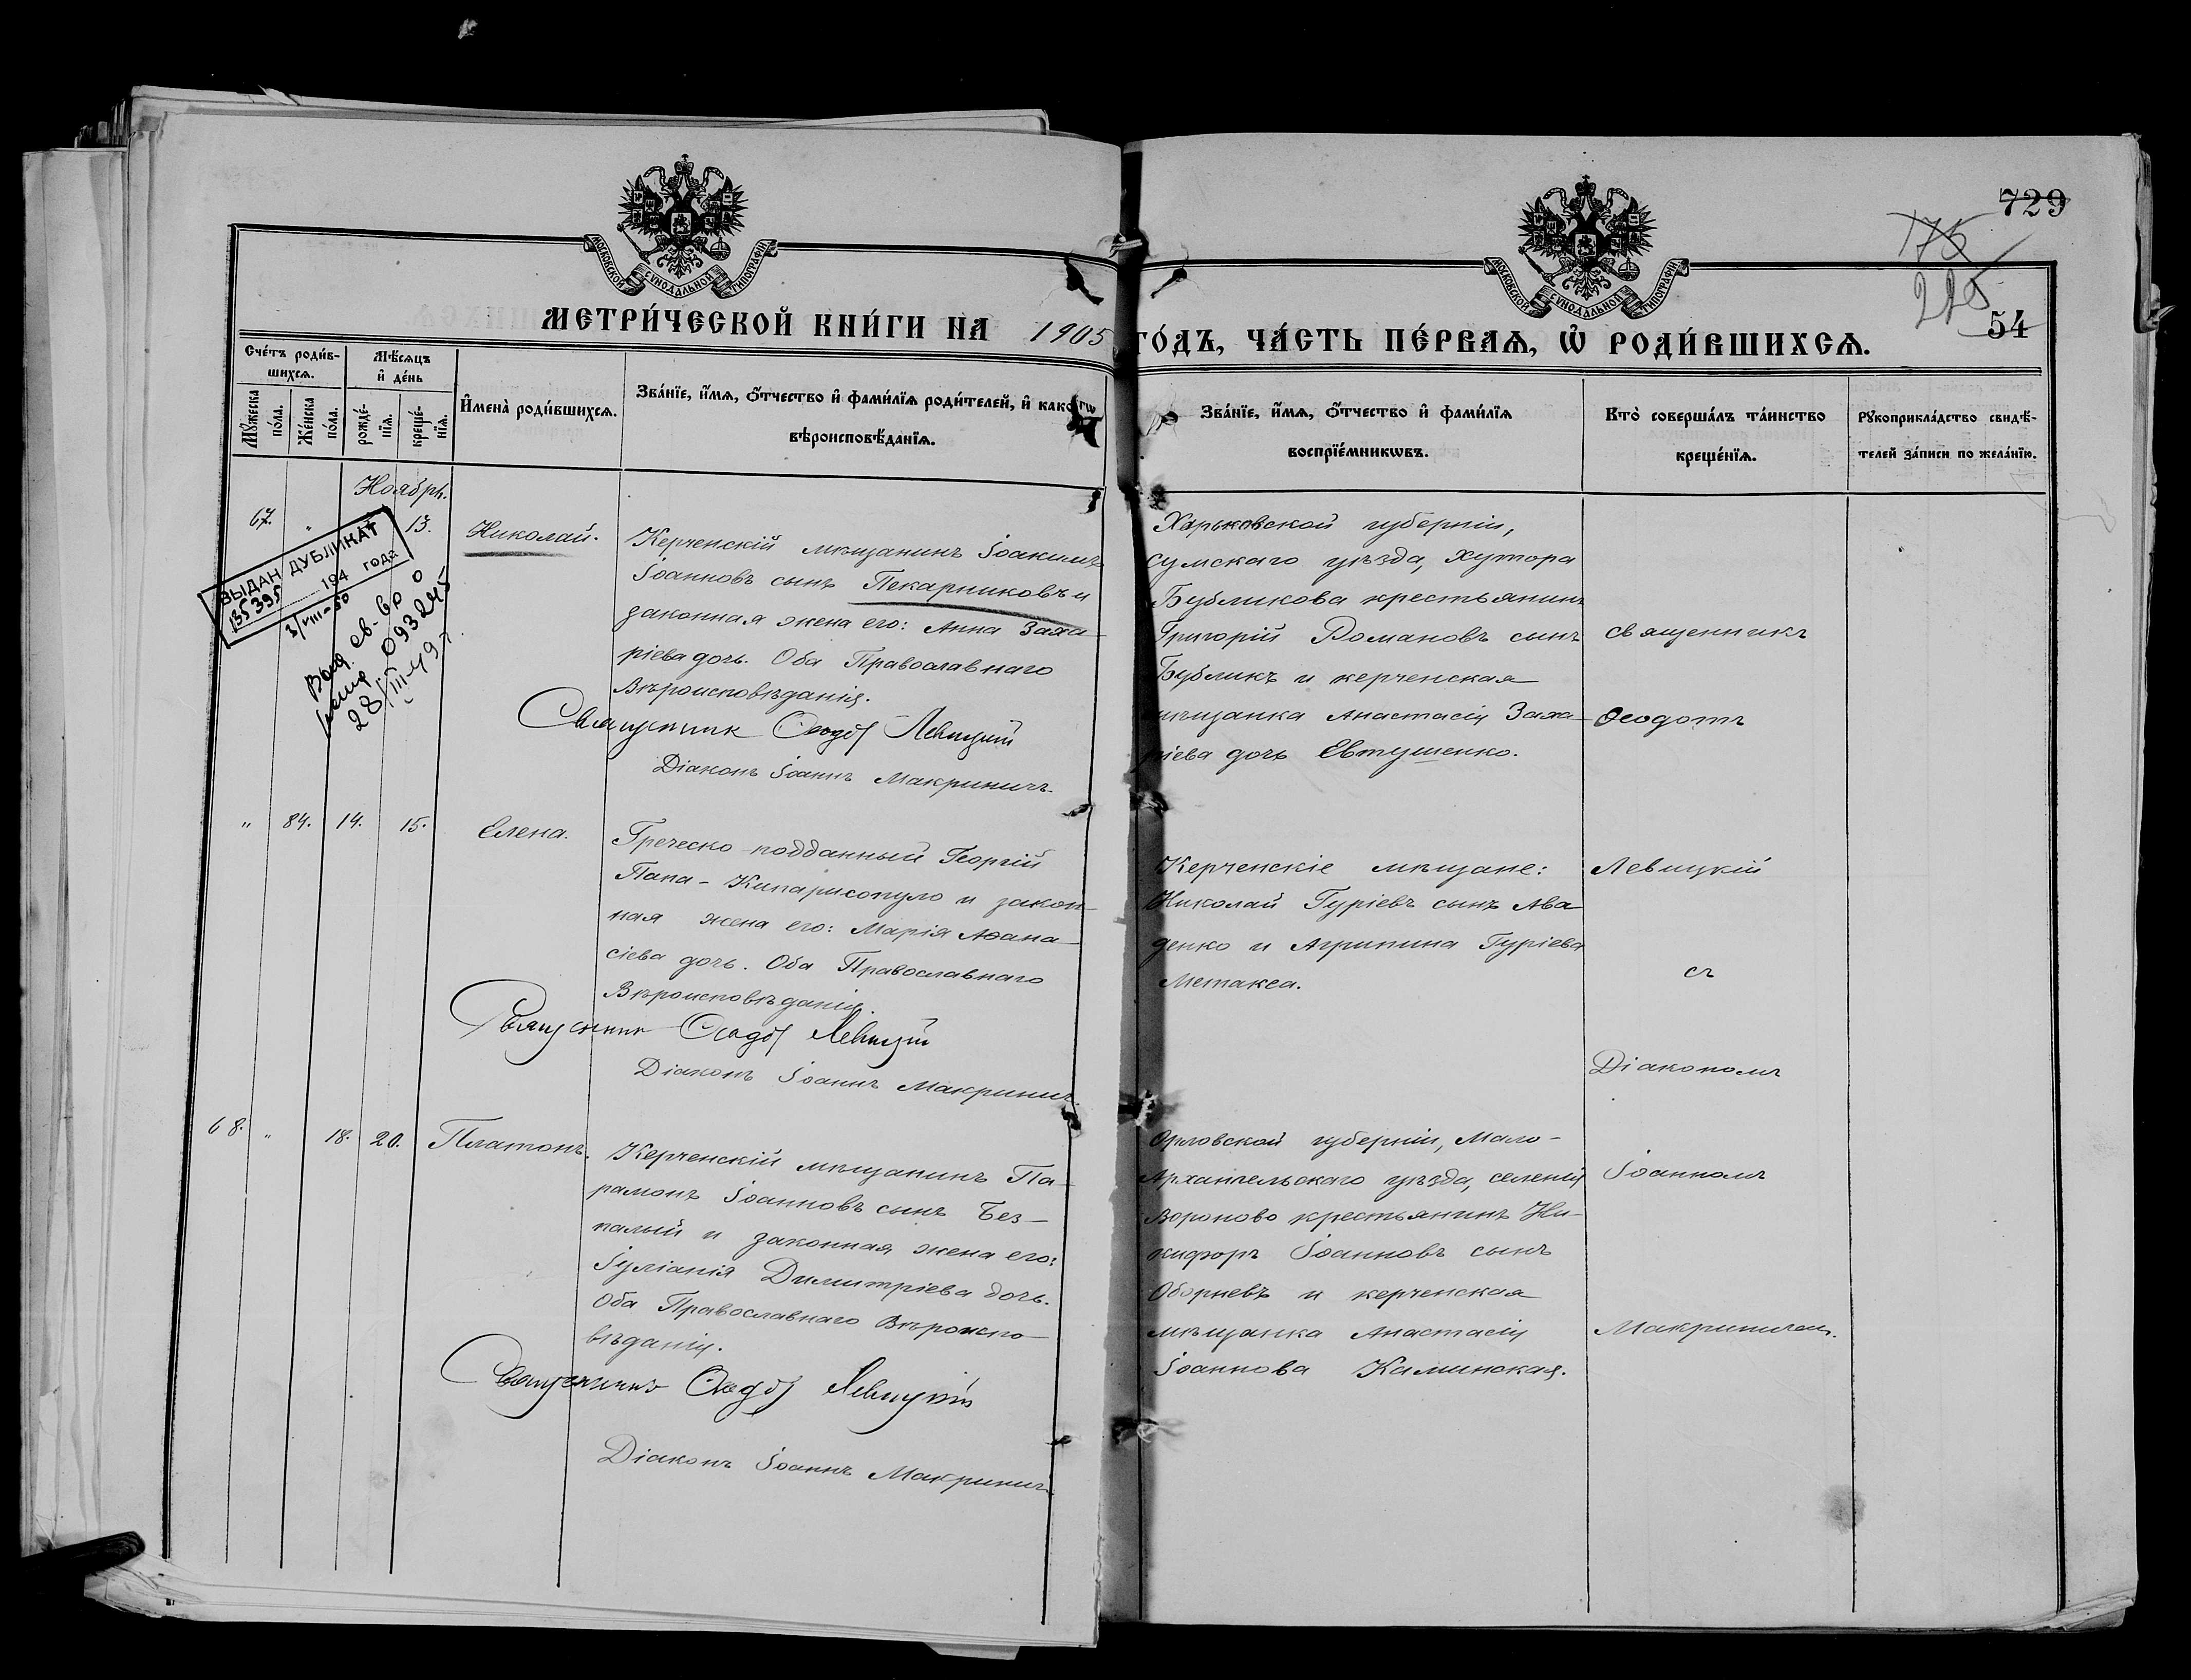 729
175
225
54
МОСКОВСКОЙ СѴНОДАЛЬНОЙ ТИПОГРАФІИ
МОСКОВСКОЙ СѴНОДАЛЬНОЙ ТИПОГРАФІИ
МЕТРИ́ЧЕСКОЙ КНИ́ГИ НА 1905 ГО́ДЪ, ЧА́СТЬ ПЕ́РВАѦ, Ѡ҆ РОДИ́ВШИХСѦ.
Сче́тъ роди́в-
шихсѧ.
Мꙋ́жеска
по́ла.
Же́нска
по́ла.
Мѣ́сѧцъ
и҆ де́нь
рожде́-
нїѧ.
креще́-
нїѧ.
И҆мена̀ роди́вшихсѧ.
Зва́нїе, и҆́мѧ, ѻ҆́тчество и҆ фами́лїѧ роди́телей, и҆ како́гѡ
вѣроисповѣ́данїѧ.
Зва́нїе, и҆́мѧ, ѻ҆́тчество и҆ фами́лїѧ
воспрїе́мникѡвъ.
Кто̀ соверша́лъ та́инство
креще́нїѧ.
Рꙋкоприкла́дство свидѣ́-
телей за́писи по жела́нїю.
Ноябрь.
67. " 13. Николай.
Керченскій мѣщанинъ Іоакимъ
Іоанновъ сынъ Пекарниковъ и
законная жена его: Анна Заха-
ріева дочь. Оба Православнаго
Вѣроисповѣданія.
Священник Ѳеодот Левицкий
Діаконъ Іоаннъ Макриничъ.
Харьковской губерніи,
сумскаго уѣзда, хутора
Бубликова крестьянинъ
Григорій Романовъ сынъ
Бубликъ и керченская
мѣщанка Анастасія Заха-
ріева дочь Евтушенко.
ВЫДАН ДУБЛИКАТ
135395 194 года
3/VIII-50
Выд. св-во
093245
28/III-49 г.
" 84. 14. 15. Елена.
Греческо-подданный Георгій
Папа-Кипарисопуло и закон-
ная жена его: Марія Аѳана-
сіева дочь. Оба Православнаго
Вѣроисповѣданія.
Священник Ѳеодот Левицкий
Діаконъ Іоаннъ Макриничъ.
Керченскіе мѣщане:
Николай Гуріевъ сынъ Ава-
денко и Агрипина Гуріева
Метакса.
68. " 18. 20. Платонъ.
Керченскій мѣщанинъ Па-
рамонъ Іоанновъ сынъ Без-
палый и законная жена его:
Іуліанія Димитріева дочь.
Оба Православнаго Вѣроиспо-
вѣданія.
Священникъ Ѳеодот Левицкій
Діаконъ Іоаннъ Макриничъ.
Орловской губерніи, Мало-
Архангельскаго уѣзда, селенія
Вороново крестьянинъ Ни-
кифоръ Іоанновъ сынъ
Оборневъ и керченская
мѣщанка Анастасія
Іоаннова Каминская.
священникъ
Ѳеодотъ
Левицкій
съ
Діакономъ
Іоанномъ
Макриничемъ.